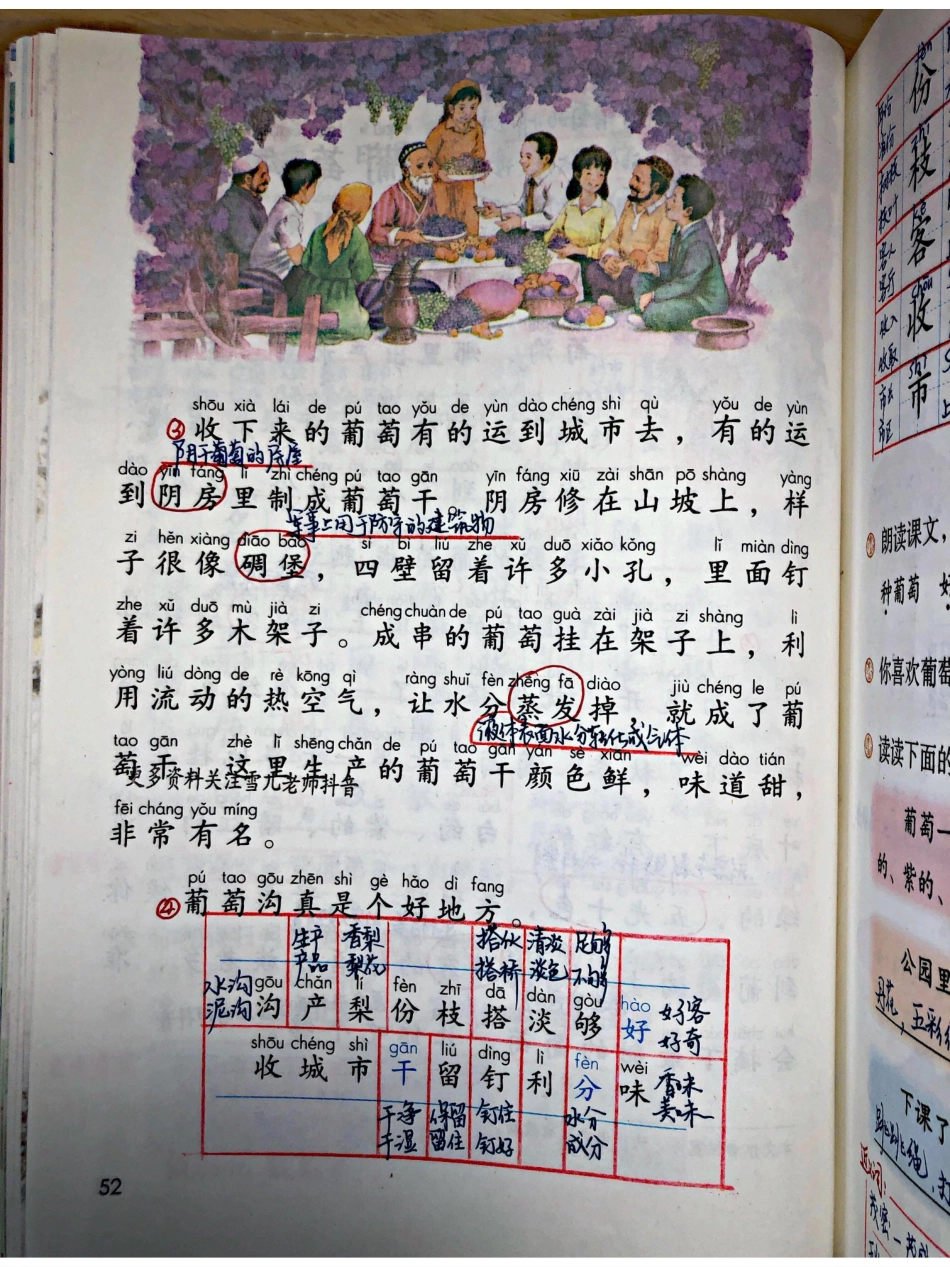 shōu xià lái de pú tao yǒu de yùn dào chéng shì qù yǒu de yùn
③收下来的葡萄有的运到城市去，有的运
阴干葡萄的房屋
dào yīn fáng lǐ zhì chéng pú tao gān yīn fáng xiū zài shān pō shàng yàng
到阴房里制成葡萄干。阴房修在山坡上，样
军事上用于防守的建筑物
zi hěn xiàng diāo bǎo sì bì liú zhe xǔ duō xiǎo kǒng lǐ miàn dìng
子很像碉堡，四壁留着许多小孔，里面钉
zhe xǔ duō mù jià zi chéng chuàn de pú tao guà zài jià zi shàng lì
着许多木架子。成串的葡萄挂在架子上，利
yòng liú dòng de rè kōng qì ràng shuǐ fèn zhēng fā diào jiù chéng le pú
用流动的热空气，让水分蒸发掉，就成了葡
液体表面水分转化成气体
tao gān zhè lǐ shēng chǎn de pú tao gān yán sè xiān wèi dào tián
萄干。这里生产的葡萄干颜色鲜，味道甜，
更多资料关注雪儿老师抖音
fēi cháng yǒu míng
非常有名。
pú tao gōu zhēn shì gè hǎo dì fang
④葡萄沟真是个好地方。
生产 香梨 搭伙 清淡 足够
产品 梨花 搭桥 淡色 不够
水沟
泥沟
gōu chǎn lí fèn zhī dā dàn gòu hào
沟 产 梨 份 枝 搭 淡 够 好
好客
好奇
shōu chéng shì gān liú dìng lì fèn wèi
收 城 市 干 留 钉 利 分 味
香味
美味
干净 保留 钉住 水分
干湿 留住 钉好 成分
52
份
枝
客
收
市
朗读课文，
种葡萄
你喜欢葡萄
读读下面的
葡萄一
的、紫的、
公园里
花，五彩
下课了
跳绳，